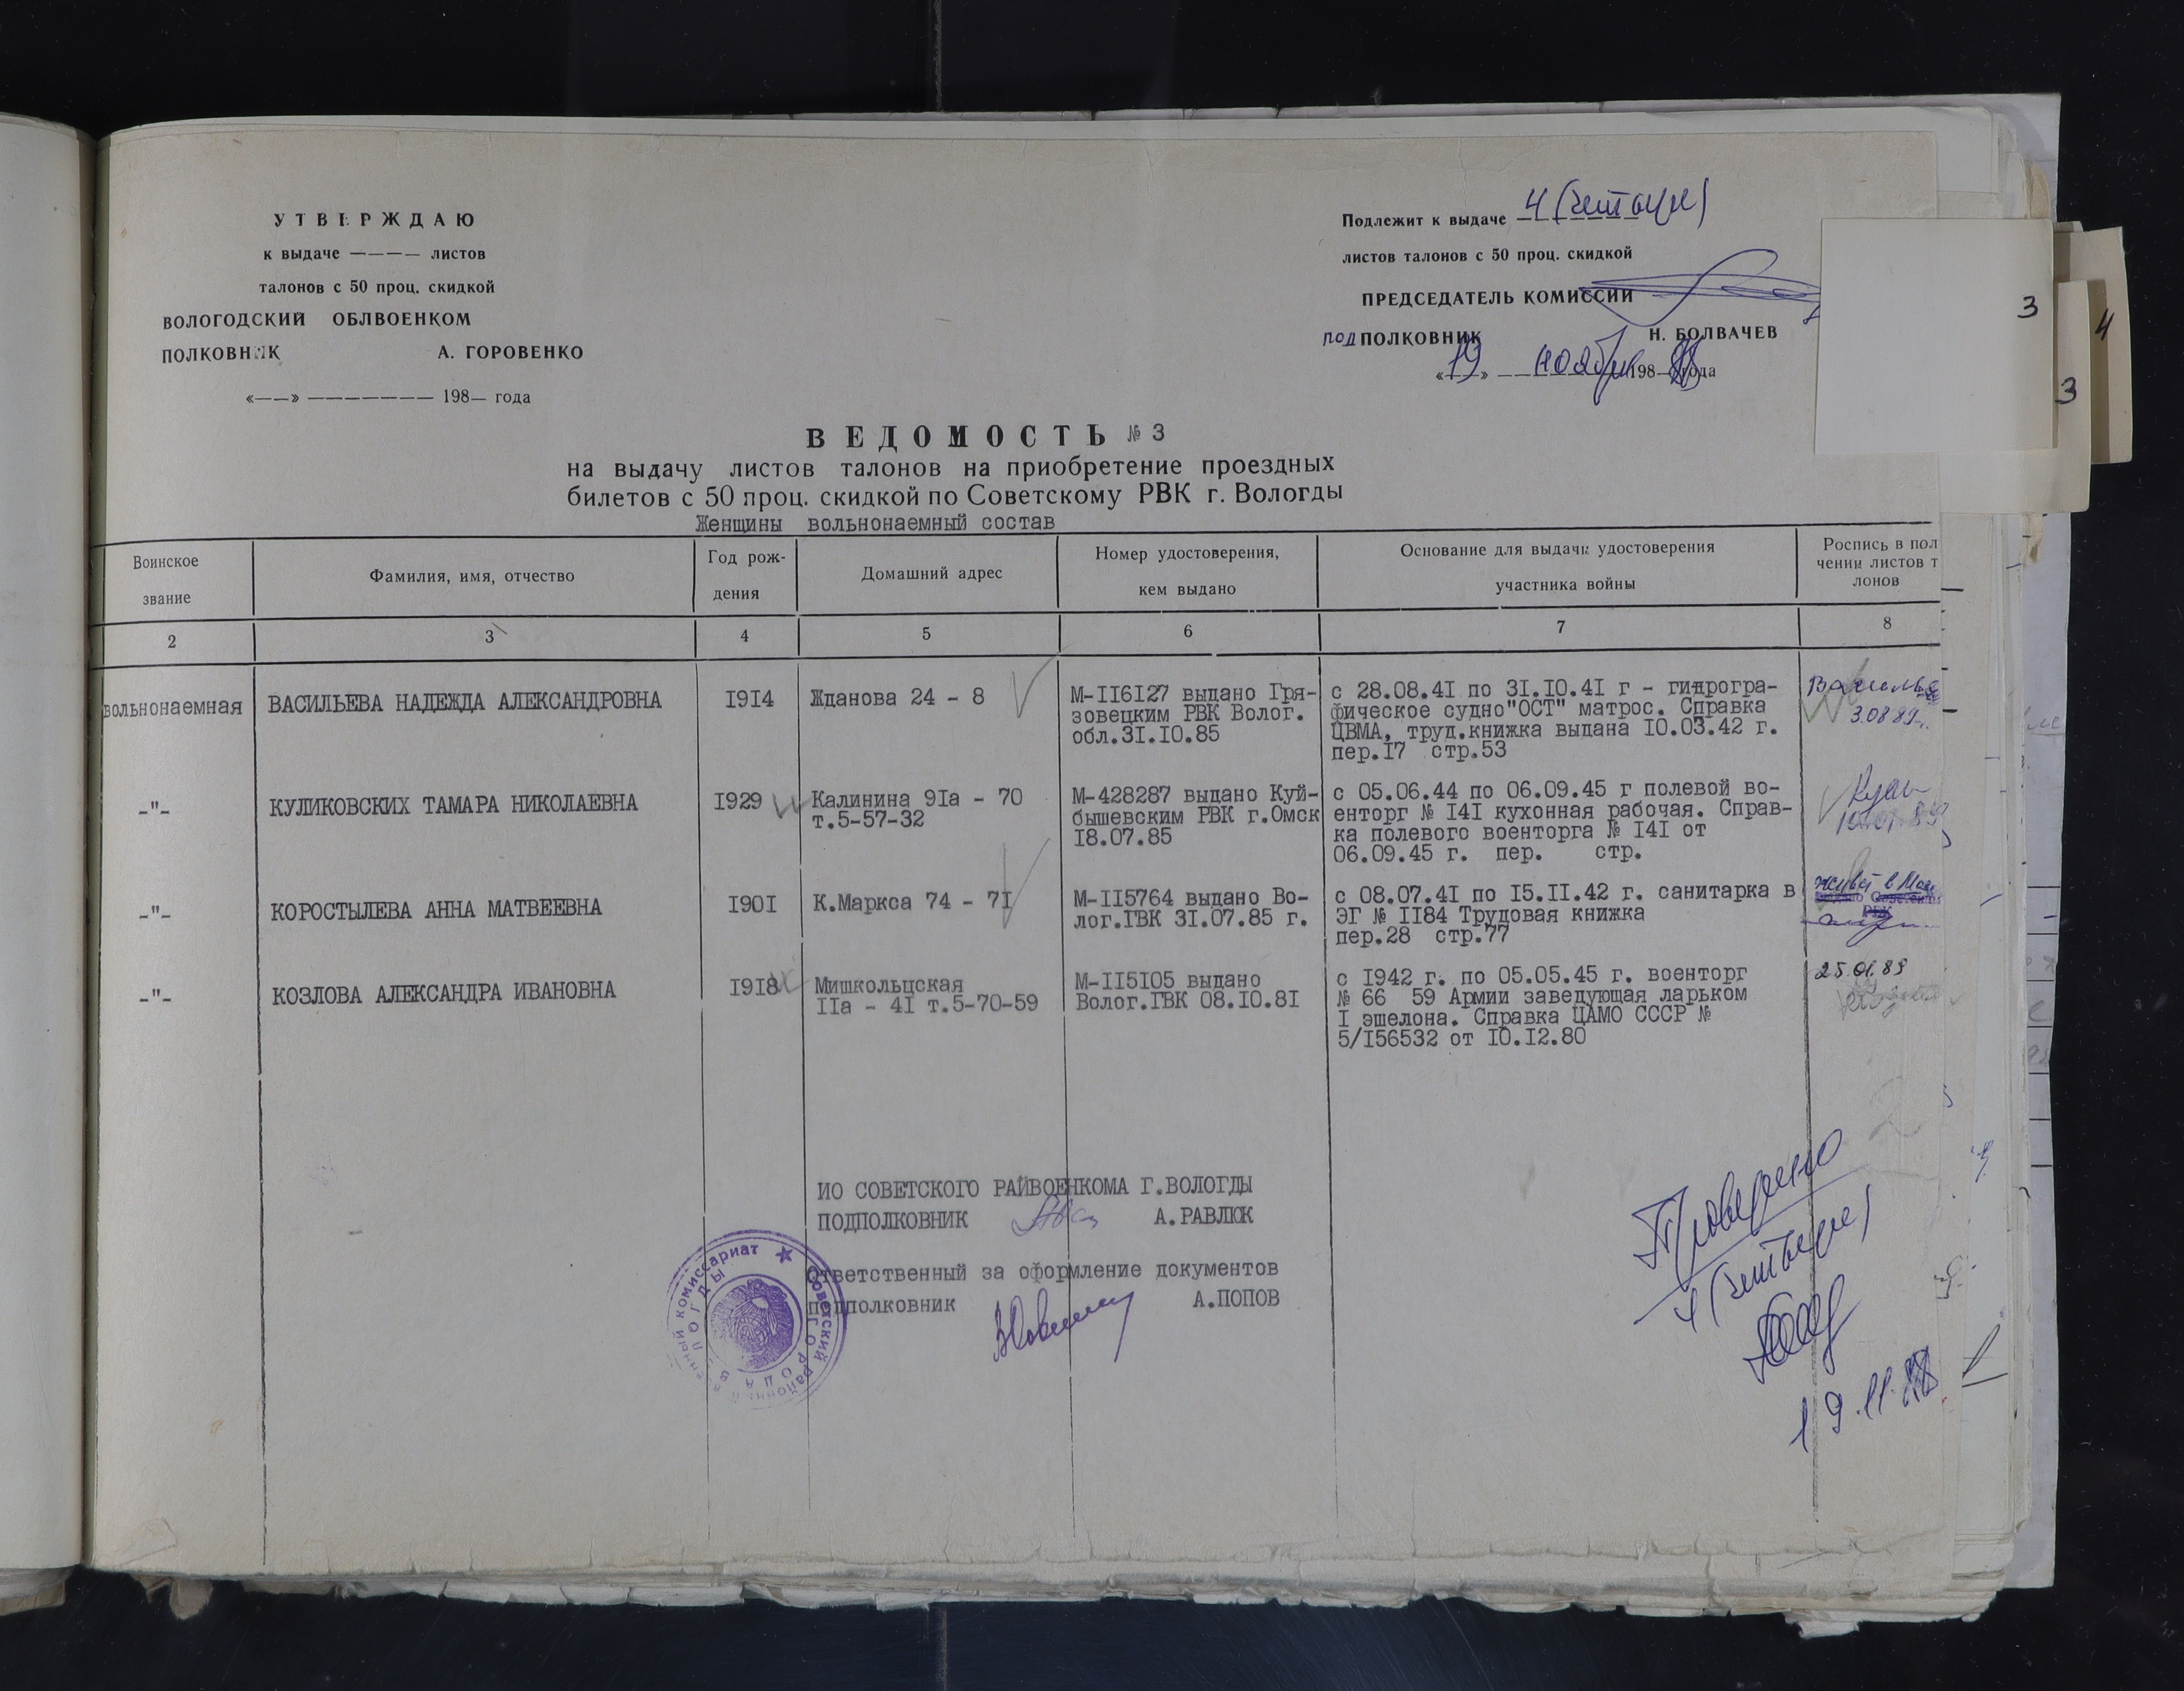 УТВЕРЖДАЮ
к выдаче ———— листов
талонов с 50 проц. скидкой
ВОЛОГОДСКИЙ ОБЛВОЕНКОМ
ПОЛКОВНИК А. ГОРОВЕНКО
«——» ——————— 198— года
Подлежит к выдаче 4 (четыре)
листов талонов с 50 проц. скидкой
ПРЕДСЕДАТЕЛЬ КОМИССИИ
подПОЛКОВНИК Н. БОЛВАЧЕВ
«19» ноября 1988 года
3
4
3
ВЕДОМОСТЬ № 3
на выдачу листов талонов на приобретение проездных
билетов с 50 проц. скидкой по Советскому РВК г. Вологды
Женщины вольнонаемный состав
Воинское звание
Фамилия, имя, отчество
Год рож-
дения
Домашний адрес
Номер удостоверения,
кем выдано
Основание для выдачи удостоверения
участника войны
Роспись в пол
чении листов т
лонов
2 3 4 5 6 7 8
вольнонаемная
ВАСИЛЬЕВА НАДЕЖДА АЛЕКСАНДРОВНА
I9I4
Жданова 24 - 8
М-II6I27 выдано Гря-
зовецким РВК Волог.
обл.3I.I0.85
с 28.08.4I по 3I.I0.4I г - гидрогра-
фическое судно"ОСТ" матрос. Справка
ЦВМА, труд.книжка выдана I0.03.42 г.
пер.I7 стр.53
3.08.89г.
-"-
КУЛИКОВСКИХ ТАМАРА НИКОЛАЕВНА
I929
Калинина 9Iа - 70
т.5-57-32
М-428287 выдано Куй-
бышевским РВК г.Омск
I8.07.85
с 05.06.44 по 06.09.45 г полевой во-
енторг № I4I кухонная рабочая. Справ-
ка полевого военторга № I4I от
06.09.45 г. пер. стр.
-"-
КОРОСТЫЛЕВА АННА МАТВЕЕВНА
I90I
К.Маркса 74 - 7I
М-II5764 выдано Во-
лог.ГВК 3I.07.85 г.
с 08.07.4I по I5.II.42 г. санитарка в
ЭГ № II84 Трудовая книжка
пер.28 стр.77
живет в
РВК
-"-
КОЗЛОВА АЛЕКСАНДРА ИВАНОВНА
I9I8
Мишкольцская
IIа - 4I т.5-70-59
М-II5I05 выдано
Волог.ГВК 08.I0.8I
с I942 г. по 05.05.45 г. военторг
№ 66 59 Армии заведующая ларьком
I эшелона. Справка ЦАМО СССР №
5/I56532 от I0.I2.80
25.01.89
ИО СОВЕТСКОГО РАЙВОЕНКОМА Г.ВОЛОГДЫ
ПОДПОЛКОВНИК А.РАВЛЮК
Ответственный за оформление документов
подполковник А.ПОПОВ
Советский районный военный комиссариат
ГОРОДА ВОЛОГДЫ
Проверено
4 (четыре)
19.11.88
2